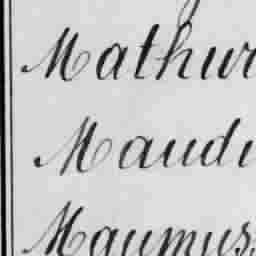 Mathur
Maudi
Maumus